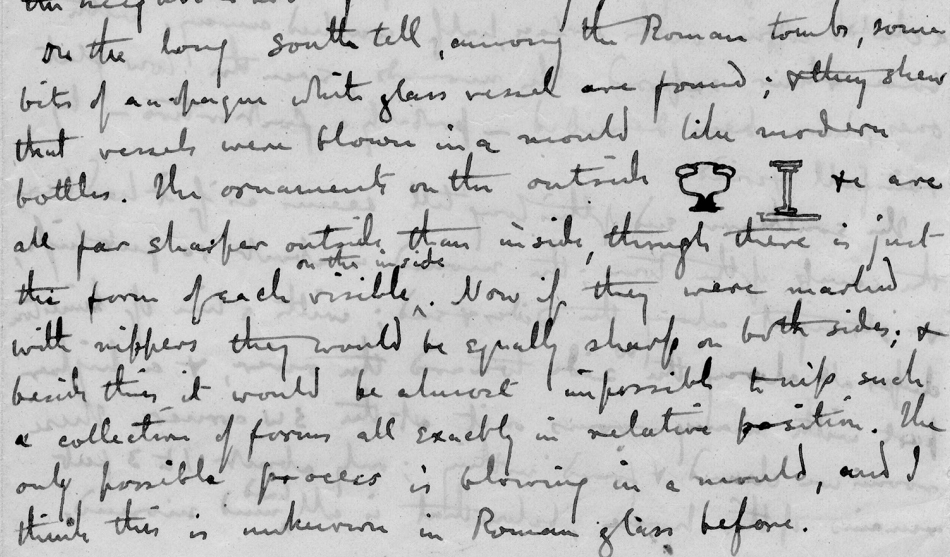 On the long south tell, among the Roman tombs, some
bits of an opaque white glass vessel are found; & they shew
that vessels were blown in a mould like modern
bottles. The ornaments on the outside &c are
all far sharper outside than inside, though there is just
on the inside
the form of each visible ^. Now if they were marked
with nippers they would be equally sharp on both sides; &
beside this it would be almost impossible to nip such
a collection of forms all exactly in relative position. The
only possible process is blowing in a mould, and I
think this is unknown in Roman glass before.